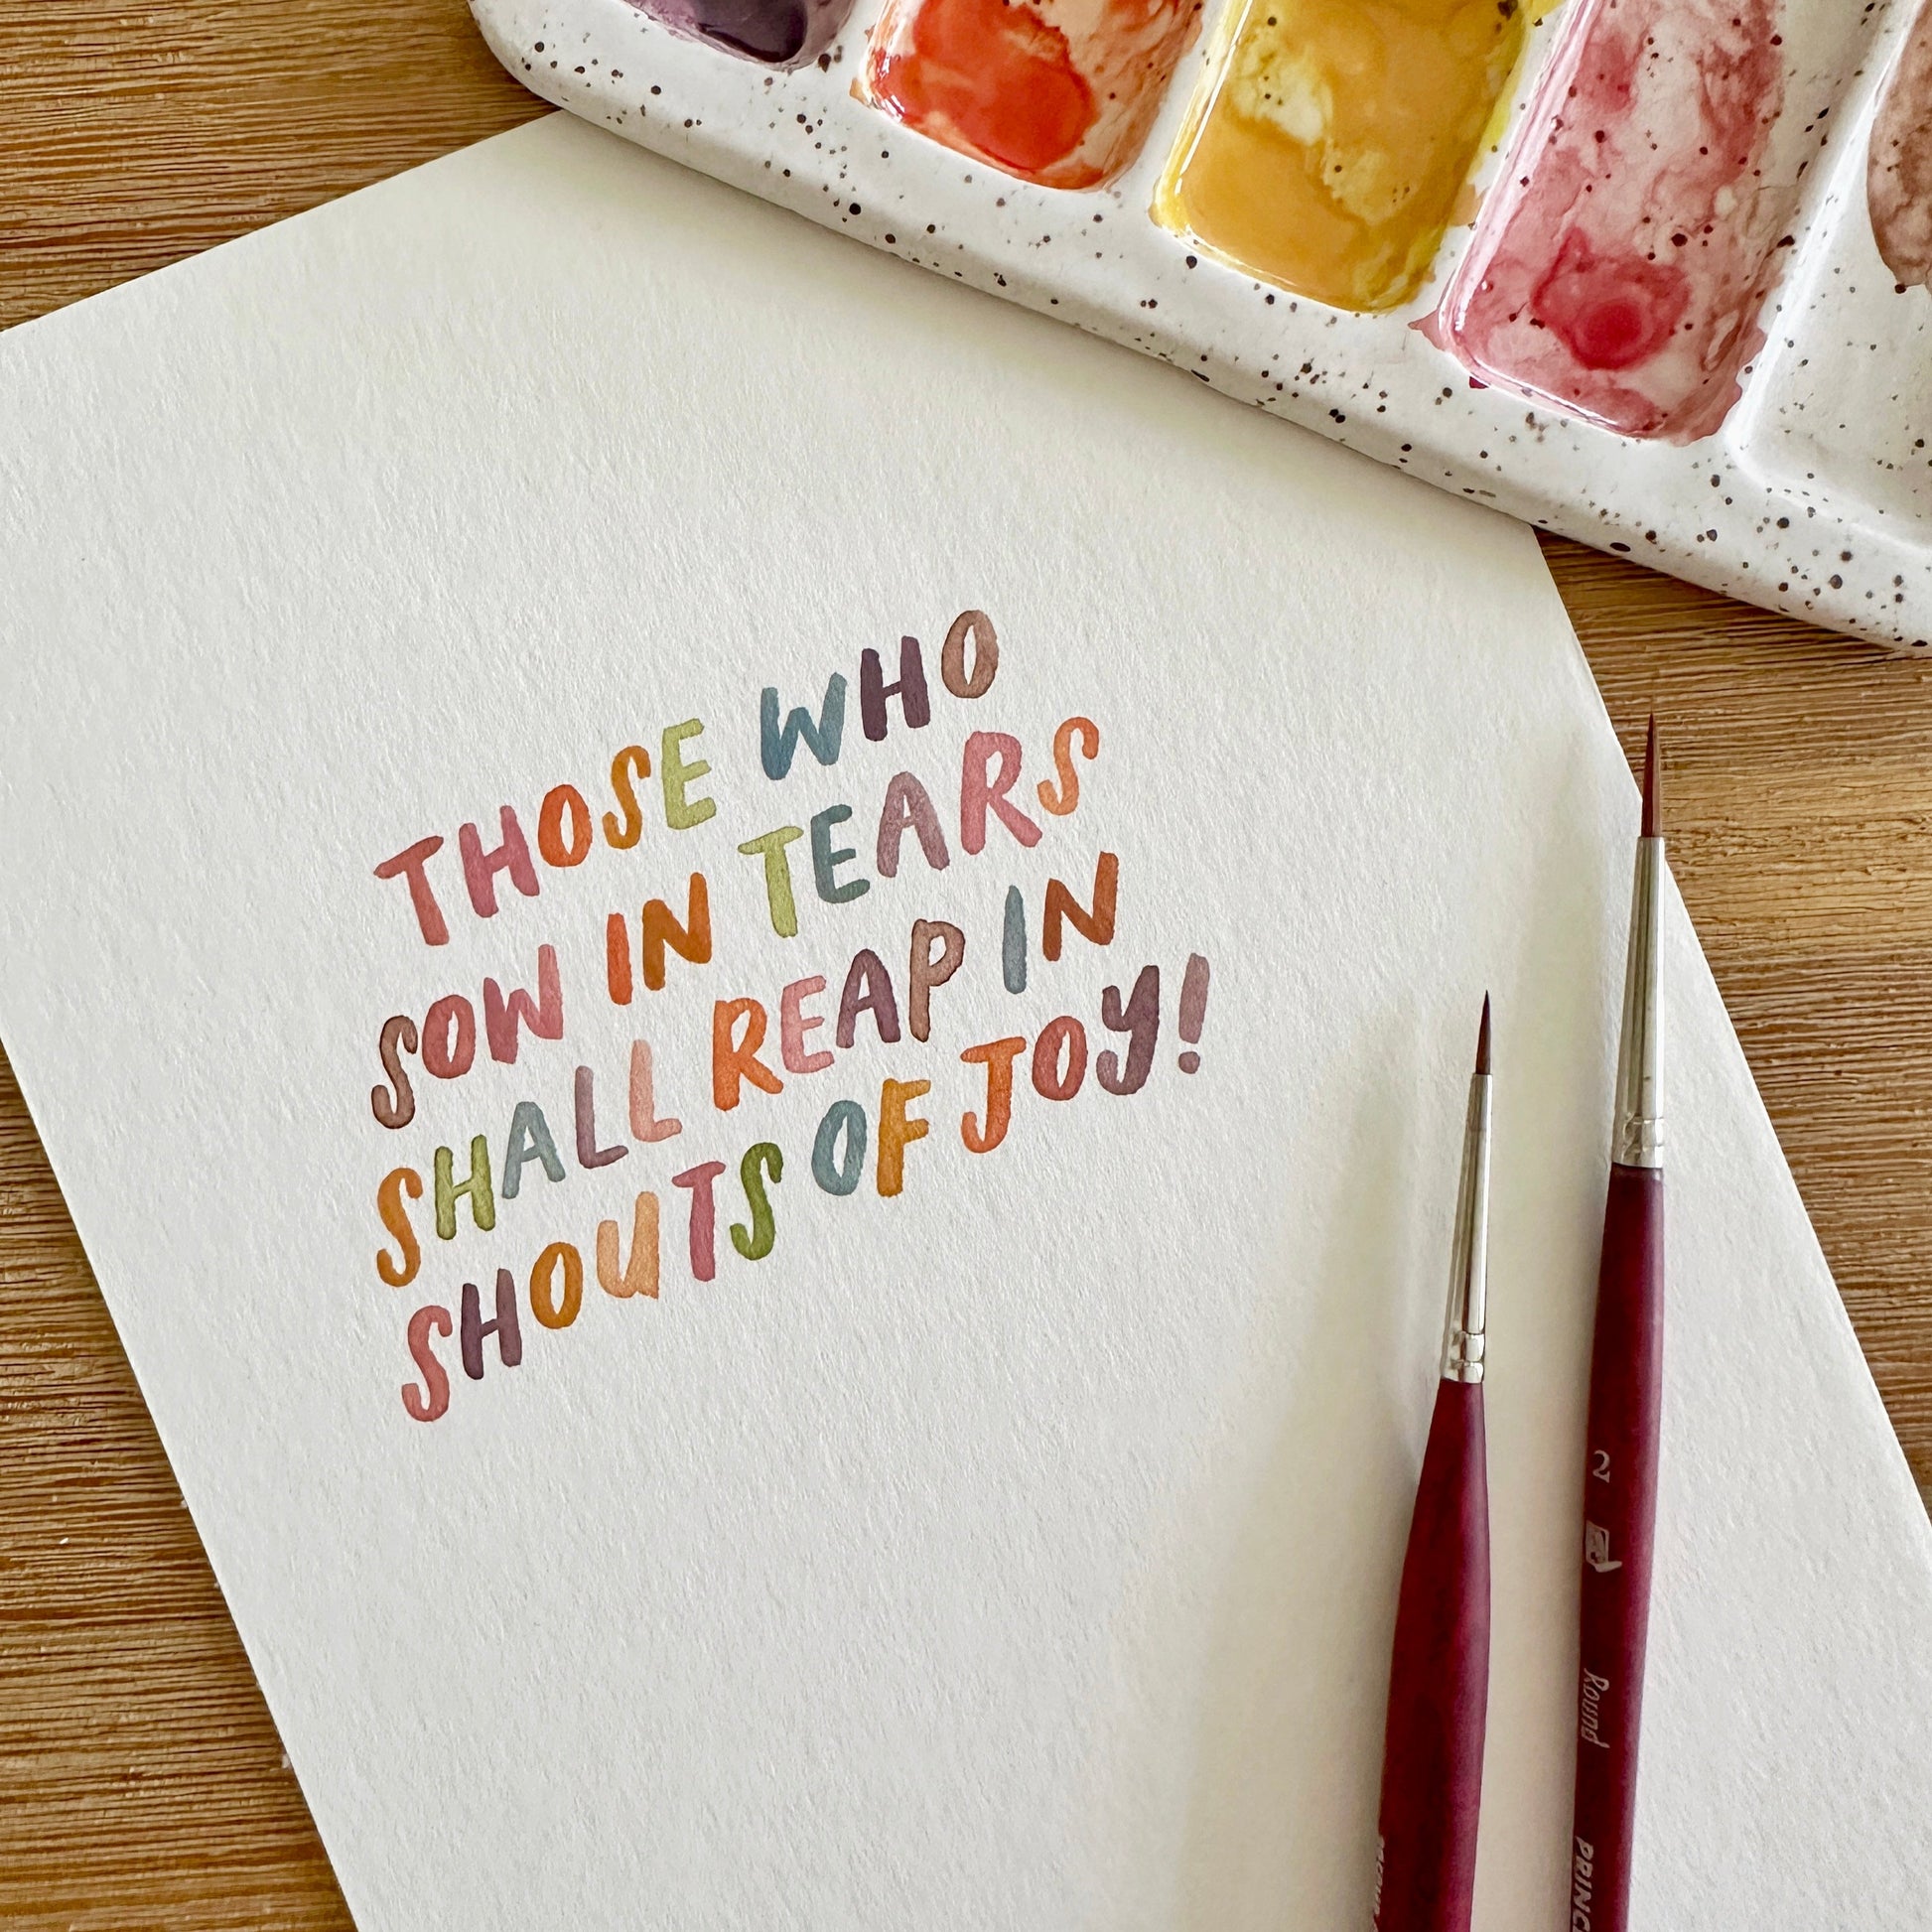 THOSE WHO
SOW IN TEARS
SHALL REAP IN
SHOUTS OF JOY!
2
Round
PRINC